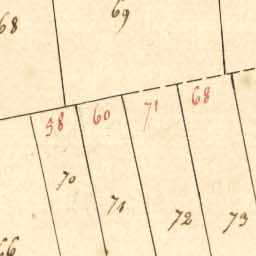 68
69
58
60
71
68
70
71
72
73
66